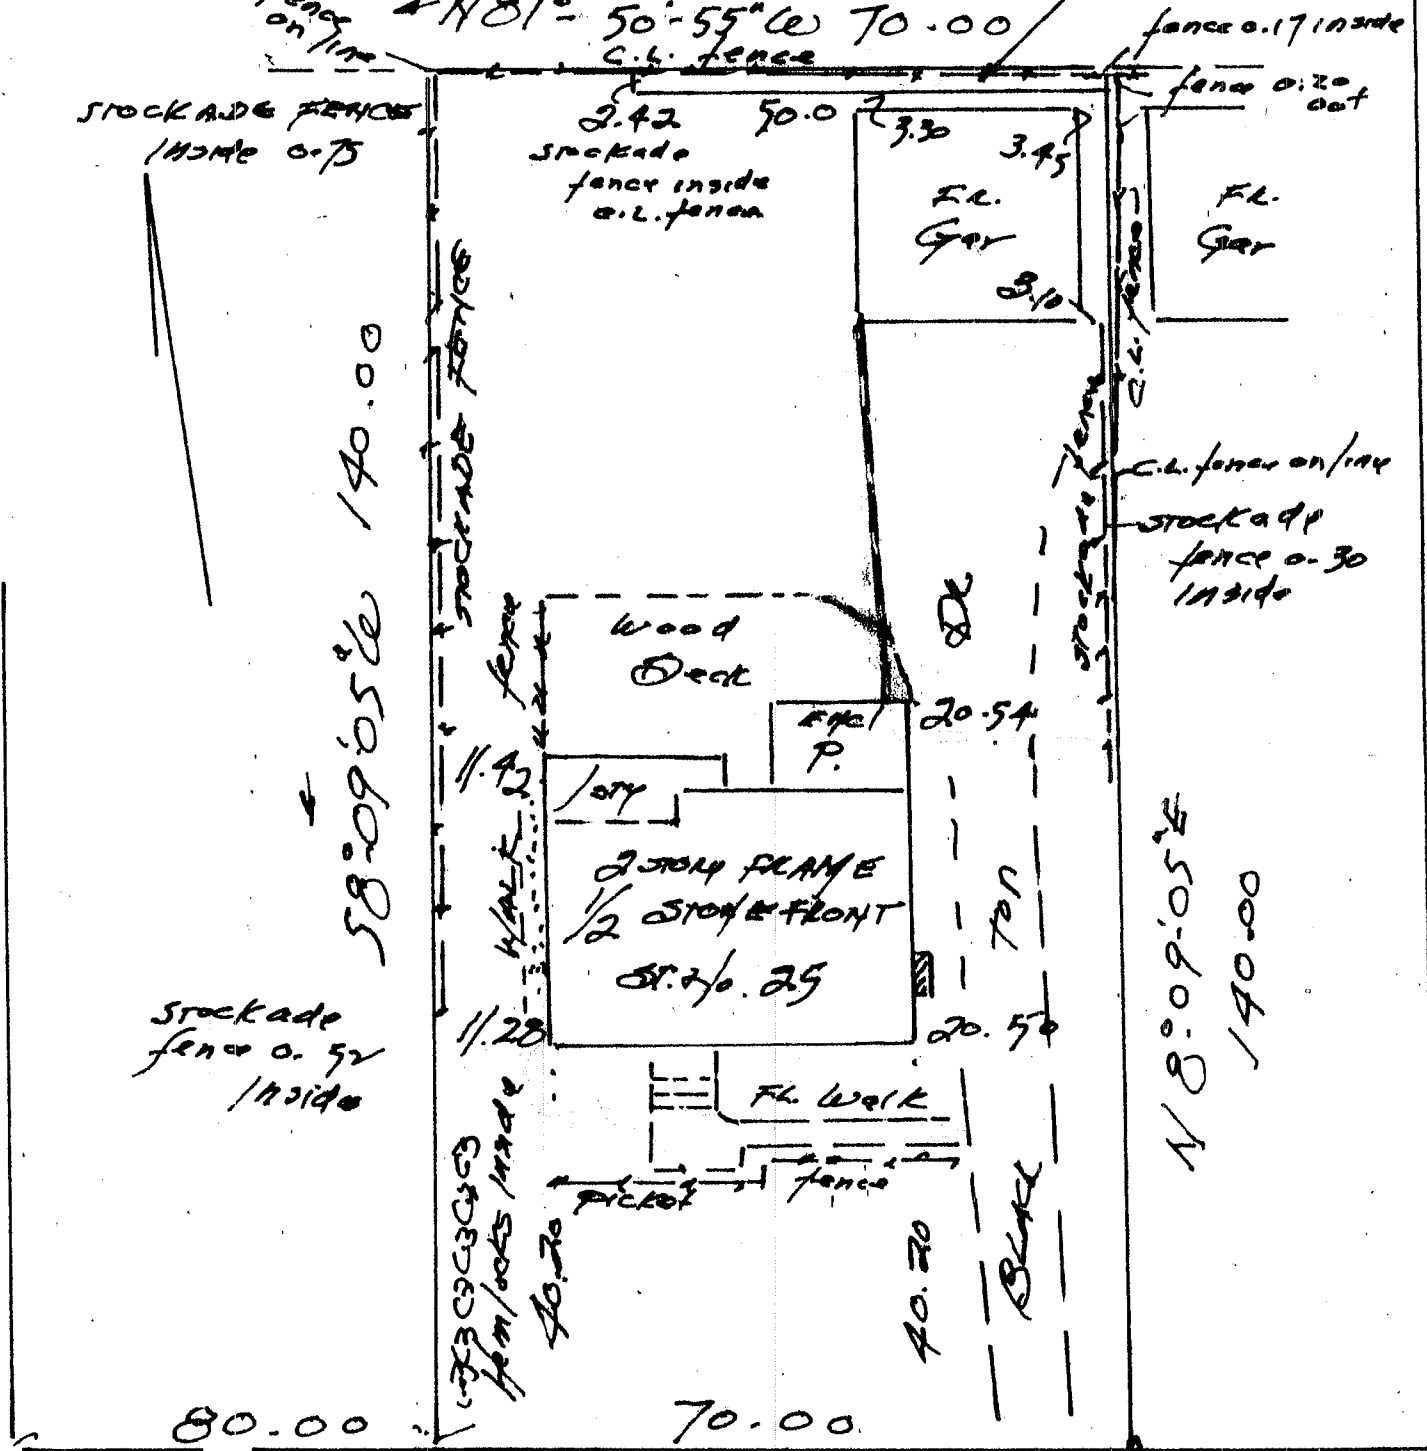 fence
on line
N81°-50'-55"W 70.00
C.L. fence
fence 0.17 inside
fence 0.20
out
STOCKADE FENCE
inside 0.75
2.42
50.0
3.30
3.45
stockade
fence inside
C.L. fence
FR.
Gar
FR.
Gar
3.10
C.L. fence
STOCKADE FENCE
S8°-09'-05"W 140.00
stockade fence
C.L. fence on line
stockade
fence 0.30
inside
fence
Wood
Deck
DR
ENC
P.
20.54
11.42
1 STY
WALK
2 STORY FRAME
1/2 STONE FRONT
ST. 2/0. 25
TOP
N8°-09'-05"E
140.00
stockade
fence 0.52
inside
11.28
20.50
FL. Walk
Picket
fence
Hemlocks inside
40.20
40.20
BLACK
80.00
70.00